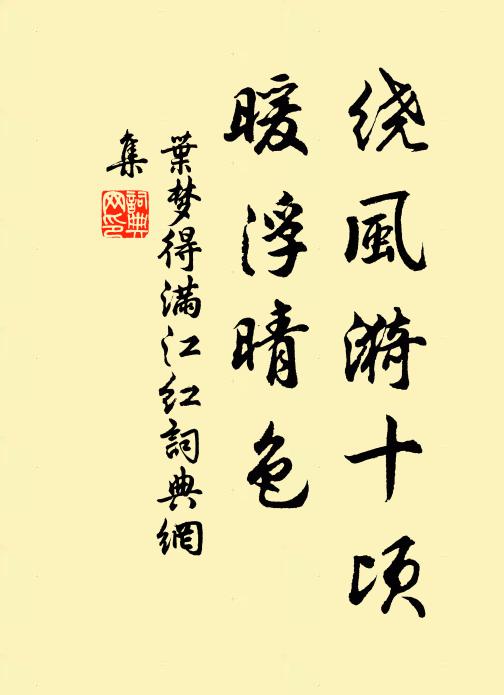 绕風漪十顷
暖浮晴色
葉梦得满江红詞典網
集
詞典
网印